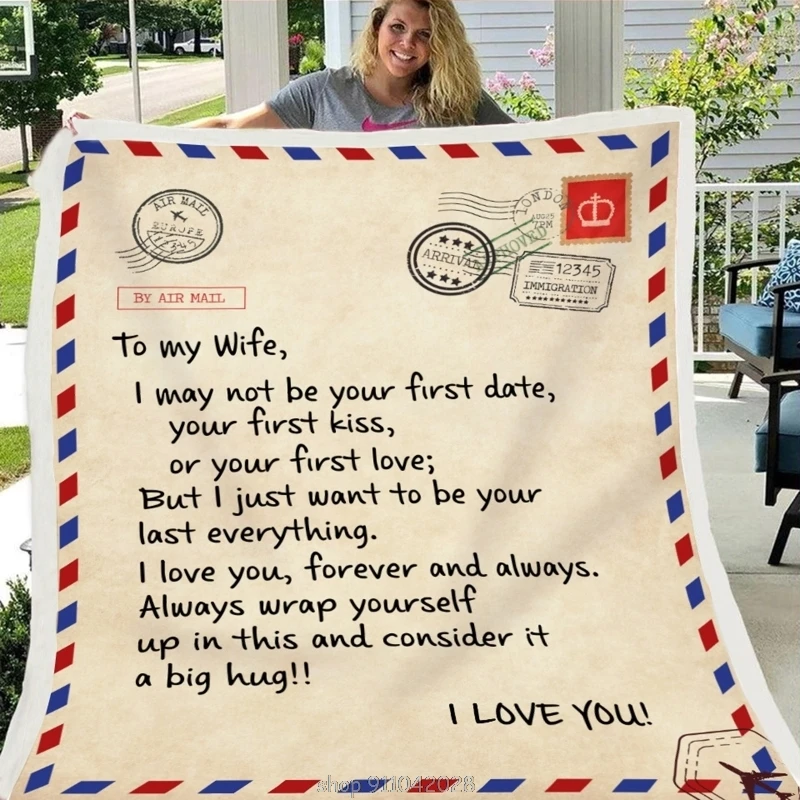 AIR MAIL
EUROPE
12345
LONDON
AUG 25
7PM
ARRIVAL
12345
IMMIGRATION
BY AIR MAIL
To my Wife,
I may not be your first date,
your first kiss,
or your first love;
But I just want to be your
last everything.
I love you, forever and always.
Always wrap yourself
up in this and consider it
a big hug!!
I LOVE YOU!
shop 911042028